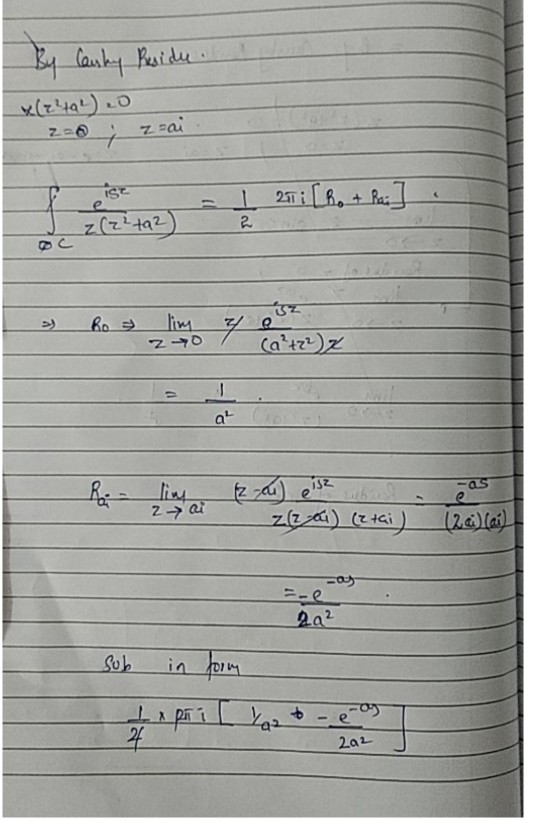 By Cauchy Residu.
z(z²+a²)=0
z=0 ; z=ai
∮_C e^{isz}/(z(z²+a²)) = 1/2 2πi [R₀ + R_{ai}]
⇒ R₀ ⇒ lim_{z→0} z e^{isz}/((a²+z²)z)
= 1/a².
R_{ai} = lim_{z→ai} (z-ai) e^{isz}/(z(z-ai)(z+ai)) = e^{-as}/((2ai)(ai))
= -e^{-as}/2a².
Sub in form
1/2 × 2πi [1/a² + - e^{-as}/2a²]